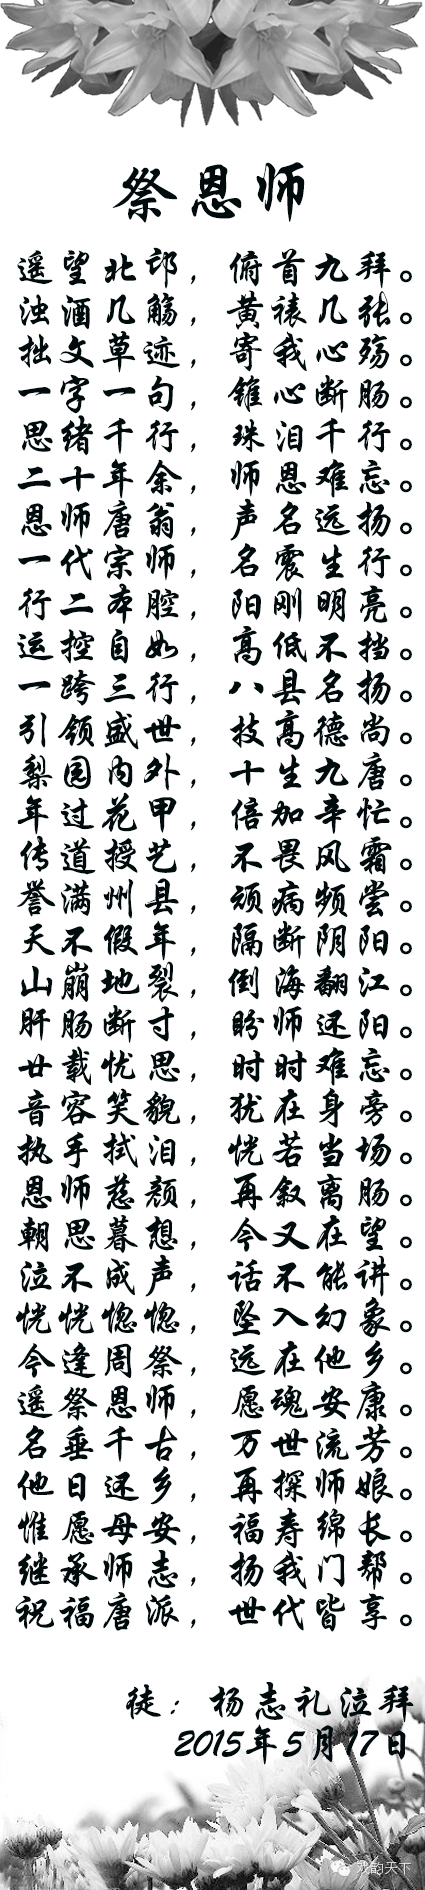 祭恩师
遥望北邙，俯首九拜。
浊酒几觞，黄裱几张。
拙文草迹，寄我心殇。
一字一句，锥心断肠。
思绪千行，珠泪千行。
二十年余，师恩难忘。
恩师唐翁，声名远扬。
一代宗师，名震生行。
行二本腔，阳刚明亮。
运控自如，高低不挡。
一跨三行，八县名扬。
引领盛世，技高德尚。
梨园内外，十生九唐。
年过花甲，倍加辛忙。
传道授艺，不畏风霜。
誉满州县，顽病频尝。
天不假年，隔断阴阳。
山崩地裂，倒海翻江。
肝肠断寸，盼师还阳。
廿载忧思，时时难忘。
音容笑貌，犹在身旁。
执手拭泪，恍若当场。
恩师慈颜，再叙离肠。
朝思暮想，今又在望。
泣不成声，话不能讲。
恍恍惚惚，坠入幻象。
今逢周祭，远在他乡。
遥祭恩师，愿魂安康。
名垂千古，万世流芳。
他日还乡，再探师娘。
惟愿母安，福寿绵长。
继承师志，扬我门帮。
祝福唐派，世代皆享。
徒：杨志礼泣拜
2015年5月17日
戏韵天下